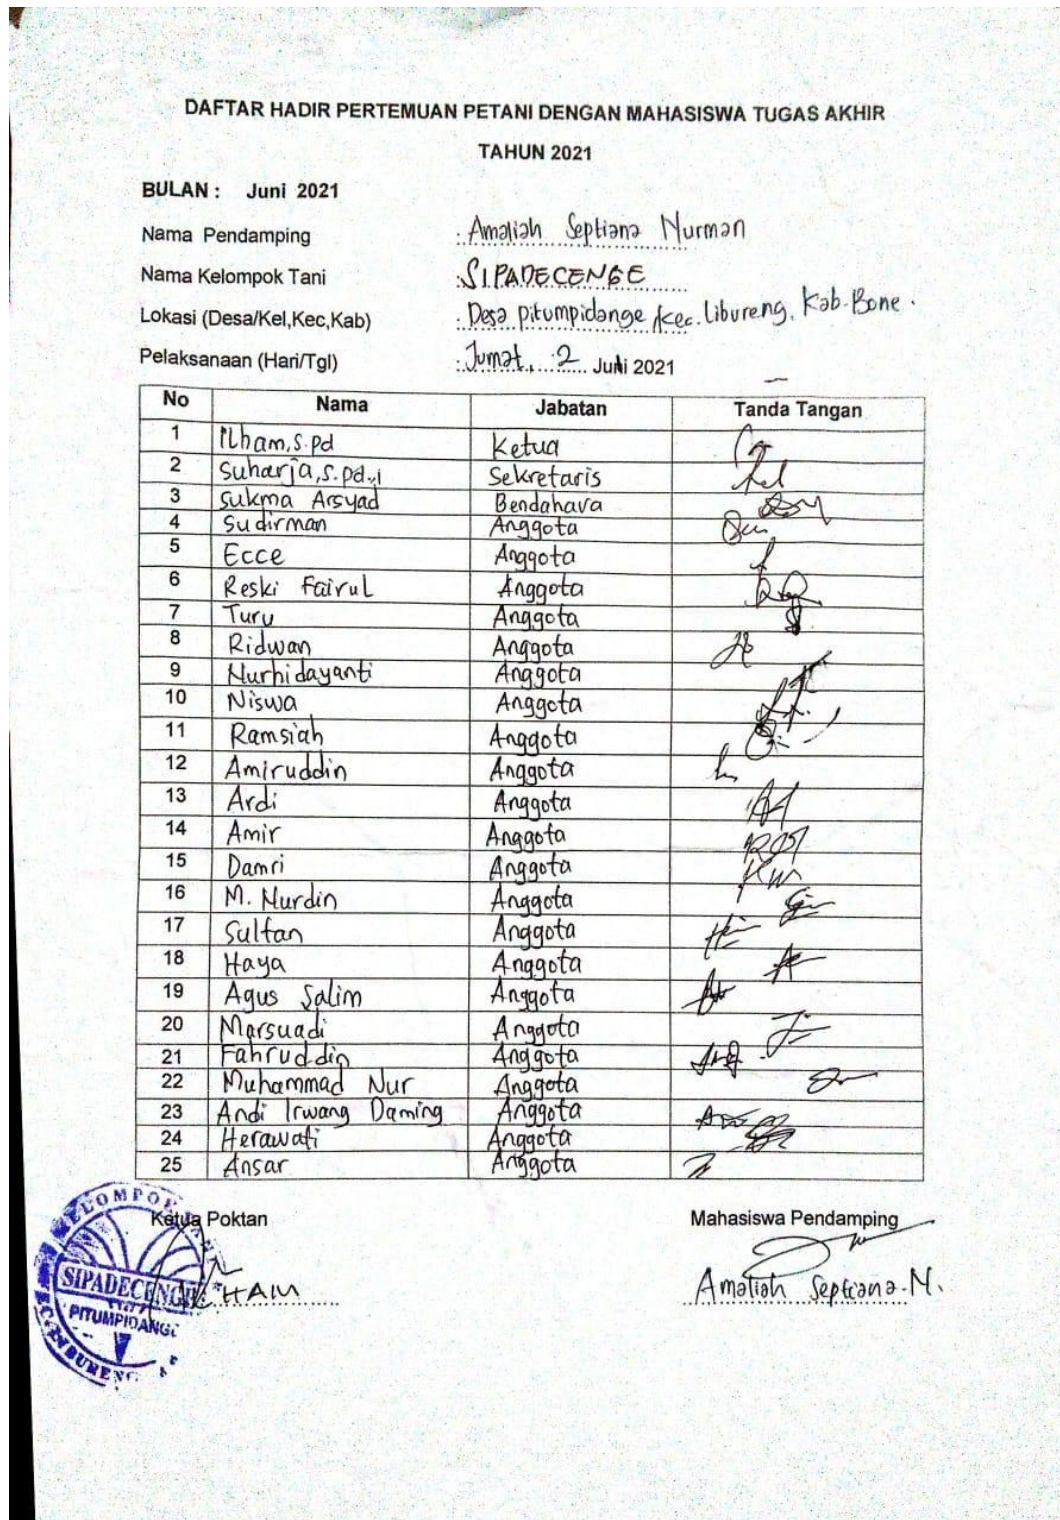 DAFTAR HADIR PERTEMUAN PETANI DENGAN MAHASISWA TUGAS AKHIR
TAHUN 2021
BULAN : Juni 2021
Nama Pendamping : Amaliah Septiana Nurman
Nama Kelompok Tani : SIPADECENGE
Lokasi (Desa/Kel,Kec,Kab) : Desa pitumpidange kec. Libureng. Kab. Bone.
Pelaksanaan (Hari/Tgl) : Jumat, 2 Juni 2021
No Nama Jabatan Tanda Tangan
1 Ilham, S.pd Ketua
2 Suharja, S.pd.i Sekretaris
3 Sukma Arsyad Bendahara
4 Sudirman Anggota
5 Ecce Anggota
6 Reski Fairul Anggota
7 Turu Anggota
8 Ridwan Anggota
9 Nurhidayanti Anggota
10 Niswa Anggota
11 Ramsiah Anggota
12 Amiruddin Anggota
13 Ardi Anggota
14 Amir Anggota
15 Damri Anggota
16 M. Nurdin Anggota
17 Sultan Anggota
18 Haya Anggota
19 Agus Salim Anggota
20 Marsuadi Anggota
21 Fahruddin Anggota
22 Muhammad Nur Anggota
23 Andi Irwang Daming Anggota
24 Herawati Anggota
25 Ansar Anggota
Ketua Poktan Mahasiswa Pendamping
ILHAM Amaliah Septiana.N.
KELOMPOK TANI
SIPADECENGE
PITUMPIDANGE
KEC. LIBURENG